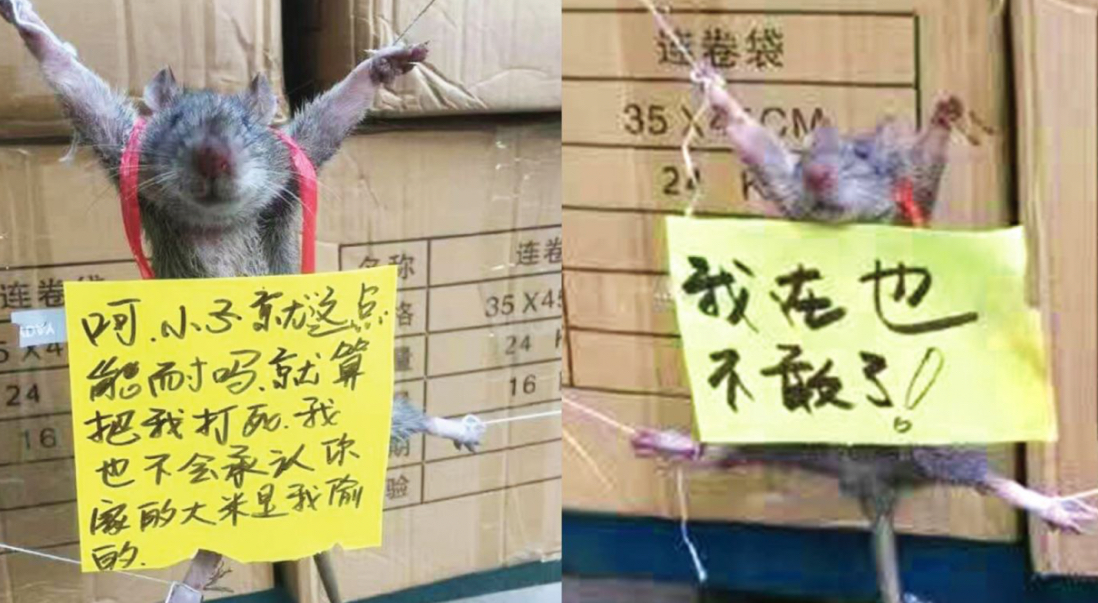 呵.小子就这点
能耐吗.就算
把我打死.我
也不会承认你
家的大米是我偷
的.
连卷袋
5 X 4
24
16
名称
连卷袋
格
35 X 45
量
24 K
16
期
验
连卷袋
35 X 45CM
24 K
我在也
不敢了!